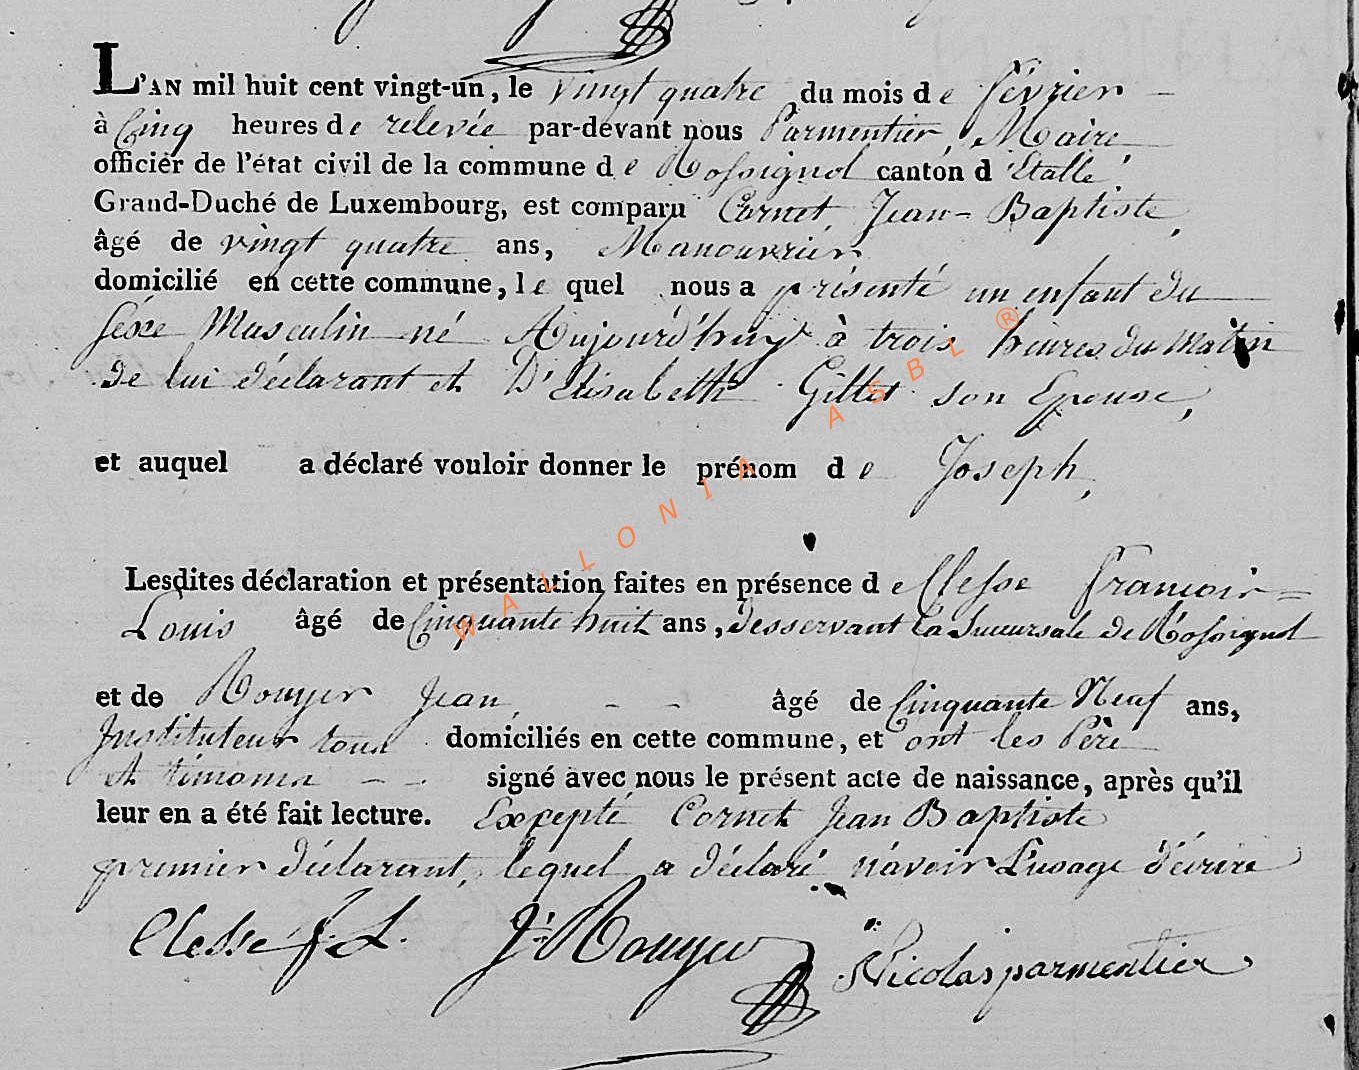 L'AN mil huit cent vingt-un, le vingt quatre du mois de février
à Cinq heures de relevée par-devant nous Parmentier, Maire,
officier de l'état civil de la commune de Rossignol canton d'Etalle
Grand-Duché de Luxembourg, est comparu Cornet Jean-Baptiste,
âgé de vingt quatre ans, Manouvrier
domicilié en cette commune, le quel nous a présenté un enfant du
séxe Masculin né Aujourd'huy à trois heures du matin
de lui déclarant et D'Elisabeth Gillet son Epouse,
et auquel a déclaré vouloir donner le prénom de Joseph,
Lesdites déclaration et présentation faites en présence de Clesse francois=
Louis âgé de Cinquante huit ans, desservant la Succursale de Rossignol
et de Rouyer Jean, - - âgé de Cinquante Neuf ans,
Instituteur tous domiciliés en cette commune, et ont les Père
et témoins - - signé avec nous le présent acte de naissance, après qu'il
leur en a été fait lecture. Excepté Cornet Jean Baptiste
premier déclarant, lequel a déclaré n'avoir L'usage d'écrire
Clesse f. L. J. Rouyer Nicolas parmentier
WALLONIA ASBL ®